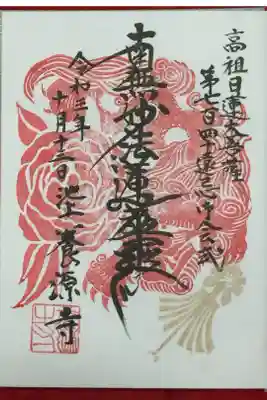 高祖日蓮大菩薩
第七百四十遠忌御会式
南無妙法蓮華経
令和三年
十月十二日 池上 養源寺